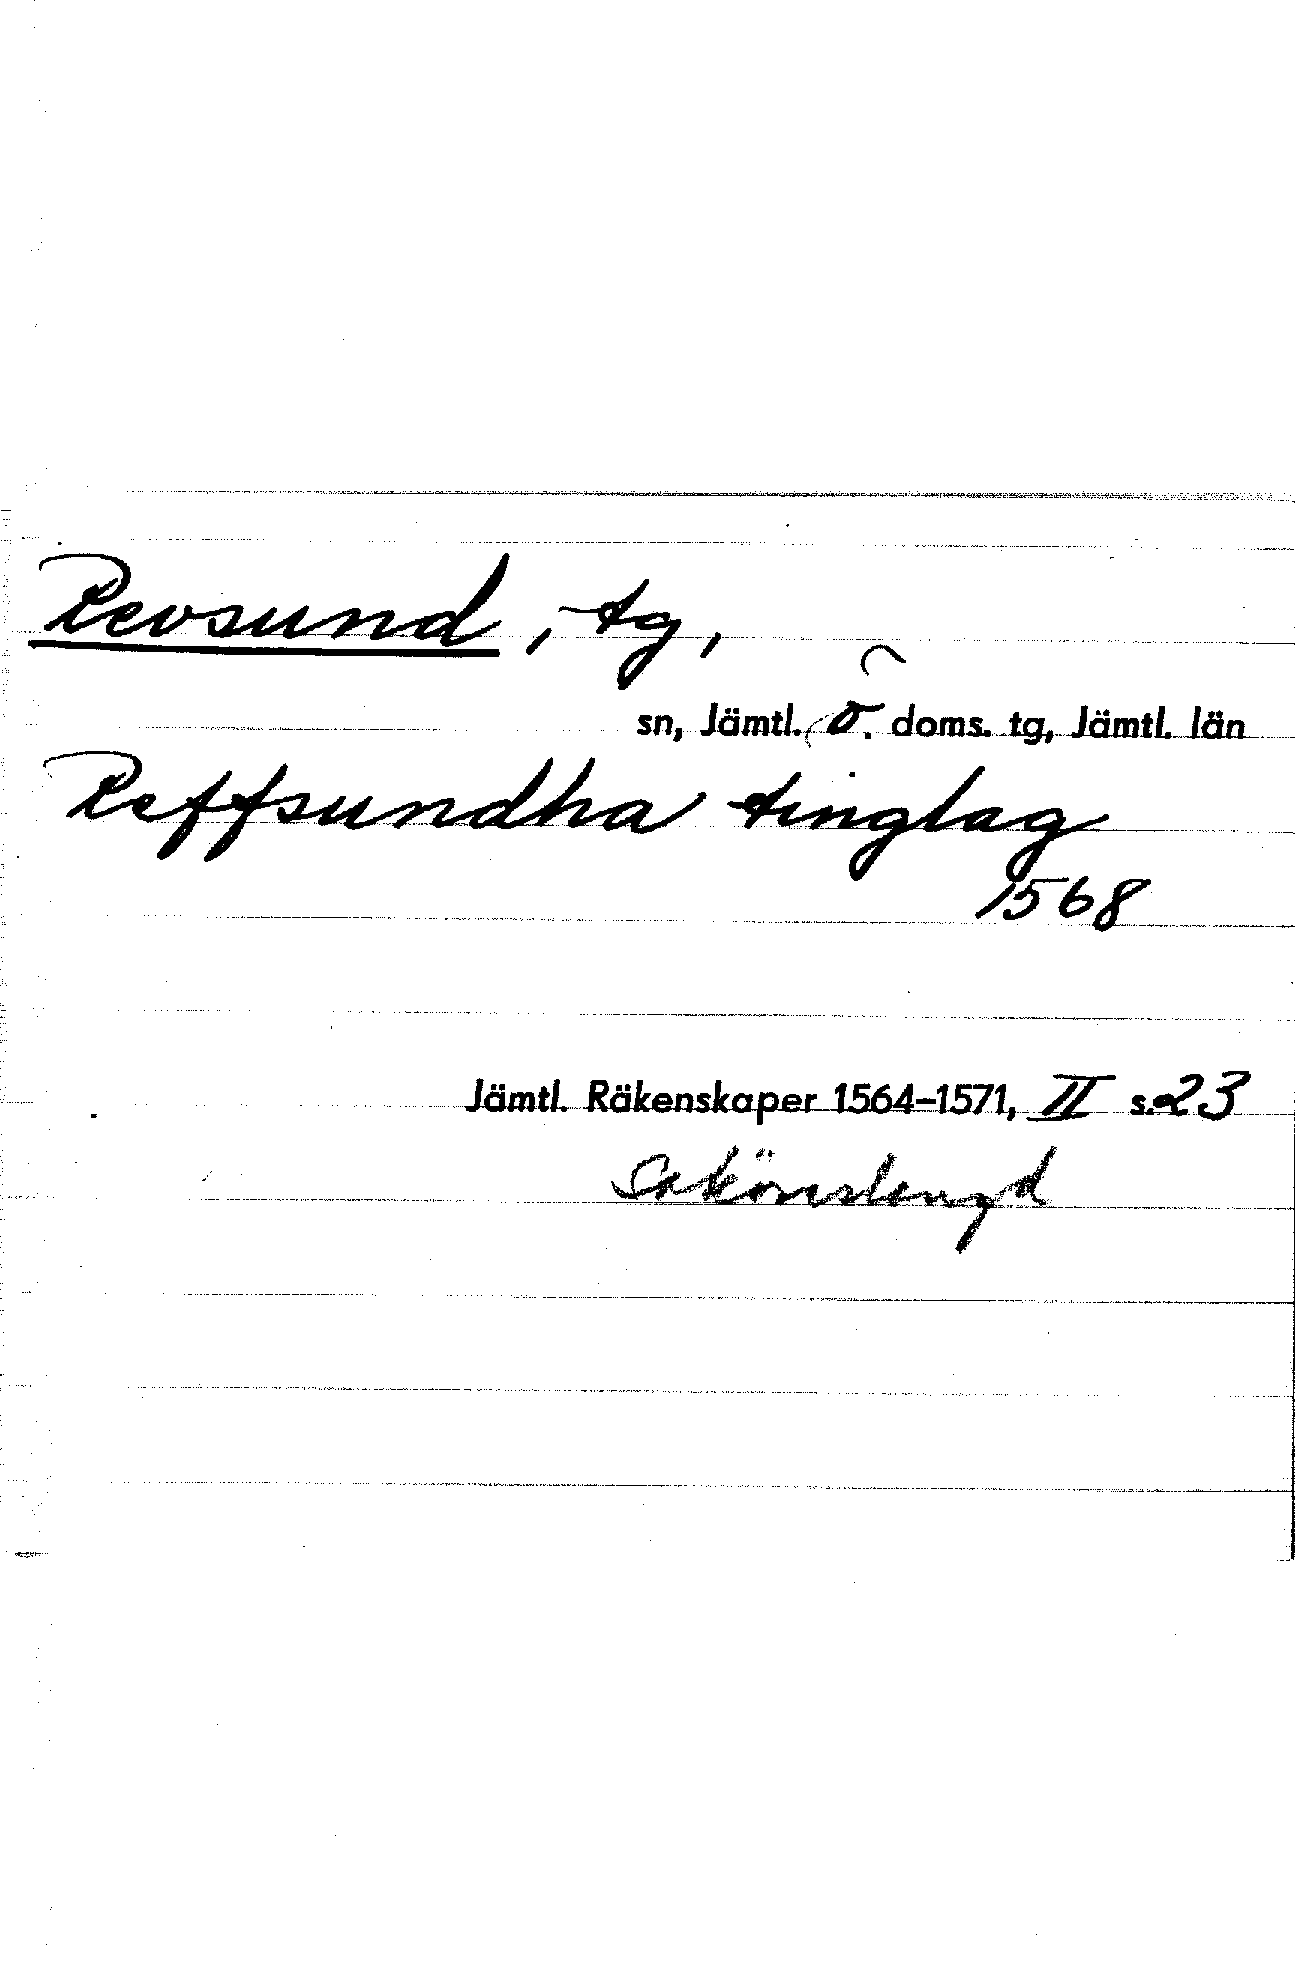 Revsund, tg,
sn, Jämtl. ö. doms. tg, Jämtl. län
Reffsundha tinglag
1568
Jämtl. Räkenskaper 1564–1571, II s. 23
Sakörslengd